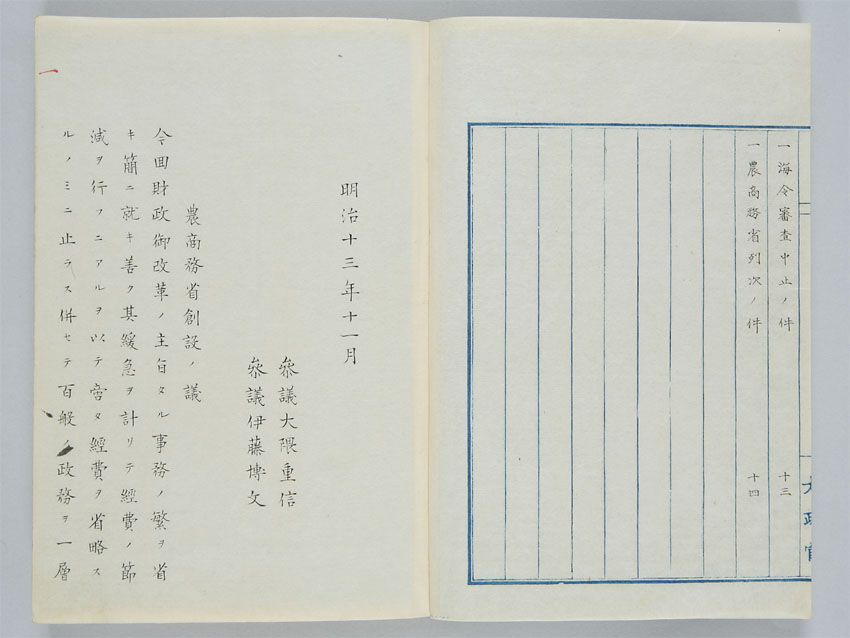 一海令審査中止ノ件 十三
一農商務省列次ノ件 十四
太政官
明治十三年十一月
參議大隈重信
參議伊藤博文
農商務省創設ノ議
今回財政御改革ノ主旨タル事務ノ繁ヲ省
キ簡ニ就キ善ク其緩急ヲ計リテ經費ノ節
減ヲ行フニアルヲ以テ啻タ經費ヲ省略ス
ルノミニ止ラス併セテ百般ノ政務ヲ一層
一